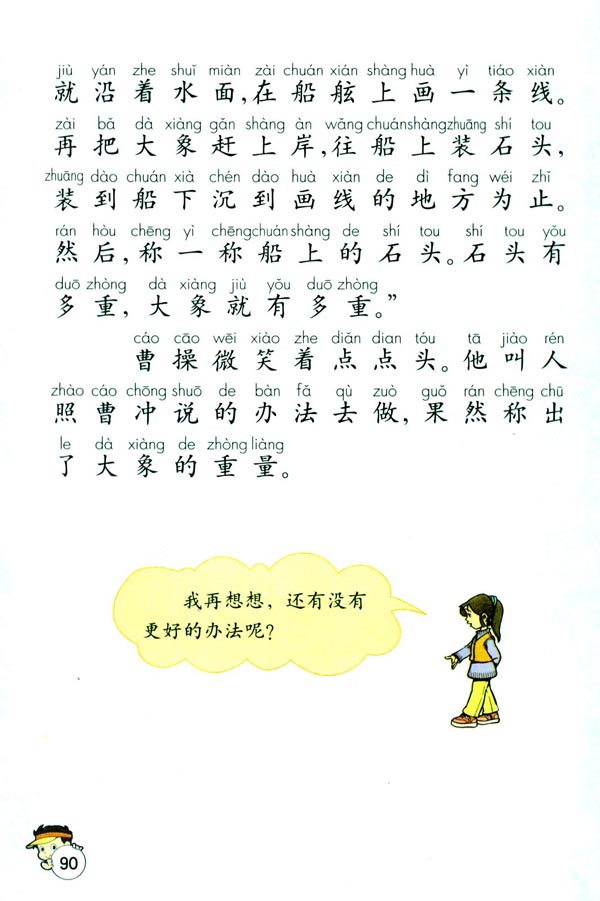 jiù yán zhe shuǐ miàn zài chuán xián shàng huà yì tiáo xiàn
就沿着水面,在船舷上画一条线。
zài bǎ dà xiàng gǎn shàng àn wǎng chuán shàng zhuāng shí tou
再把大象赶上岸,往船上装石头,
zhuāng dào chuán xià chén dào huà xiàn de dì fang wéi zhǐ
装到船下沉到画线的地方为止。
rán hòu chēng yì chēng chuán shàng de shí tou shí tou yǒu
然后,称一称船上的石头。石头有
duō zhòng dà xiàng jiù yǒu duō zhòng
多重,大象就有多重。”
cáo cāo wēi xiào zhe diǎn dian tóu tā jiào rén
曹操微笑着点点头。他叫人
zhào cáo chōng shuō de bàn fǎ qù zuò guǒ rán chēng chū
照曹冲说的办法去做,果然称出
le dà xiàng de zhòng liàng
了大象的重量。
我再想想，还有没有
更好的办法呢？
90